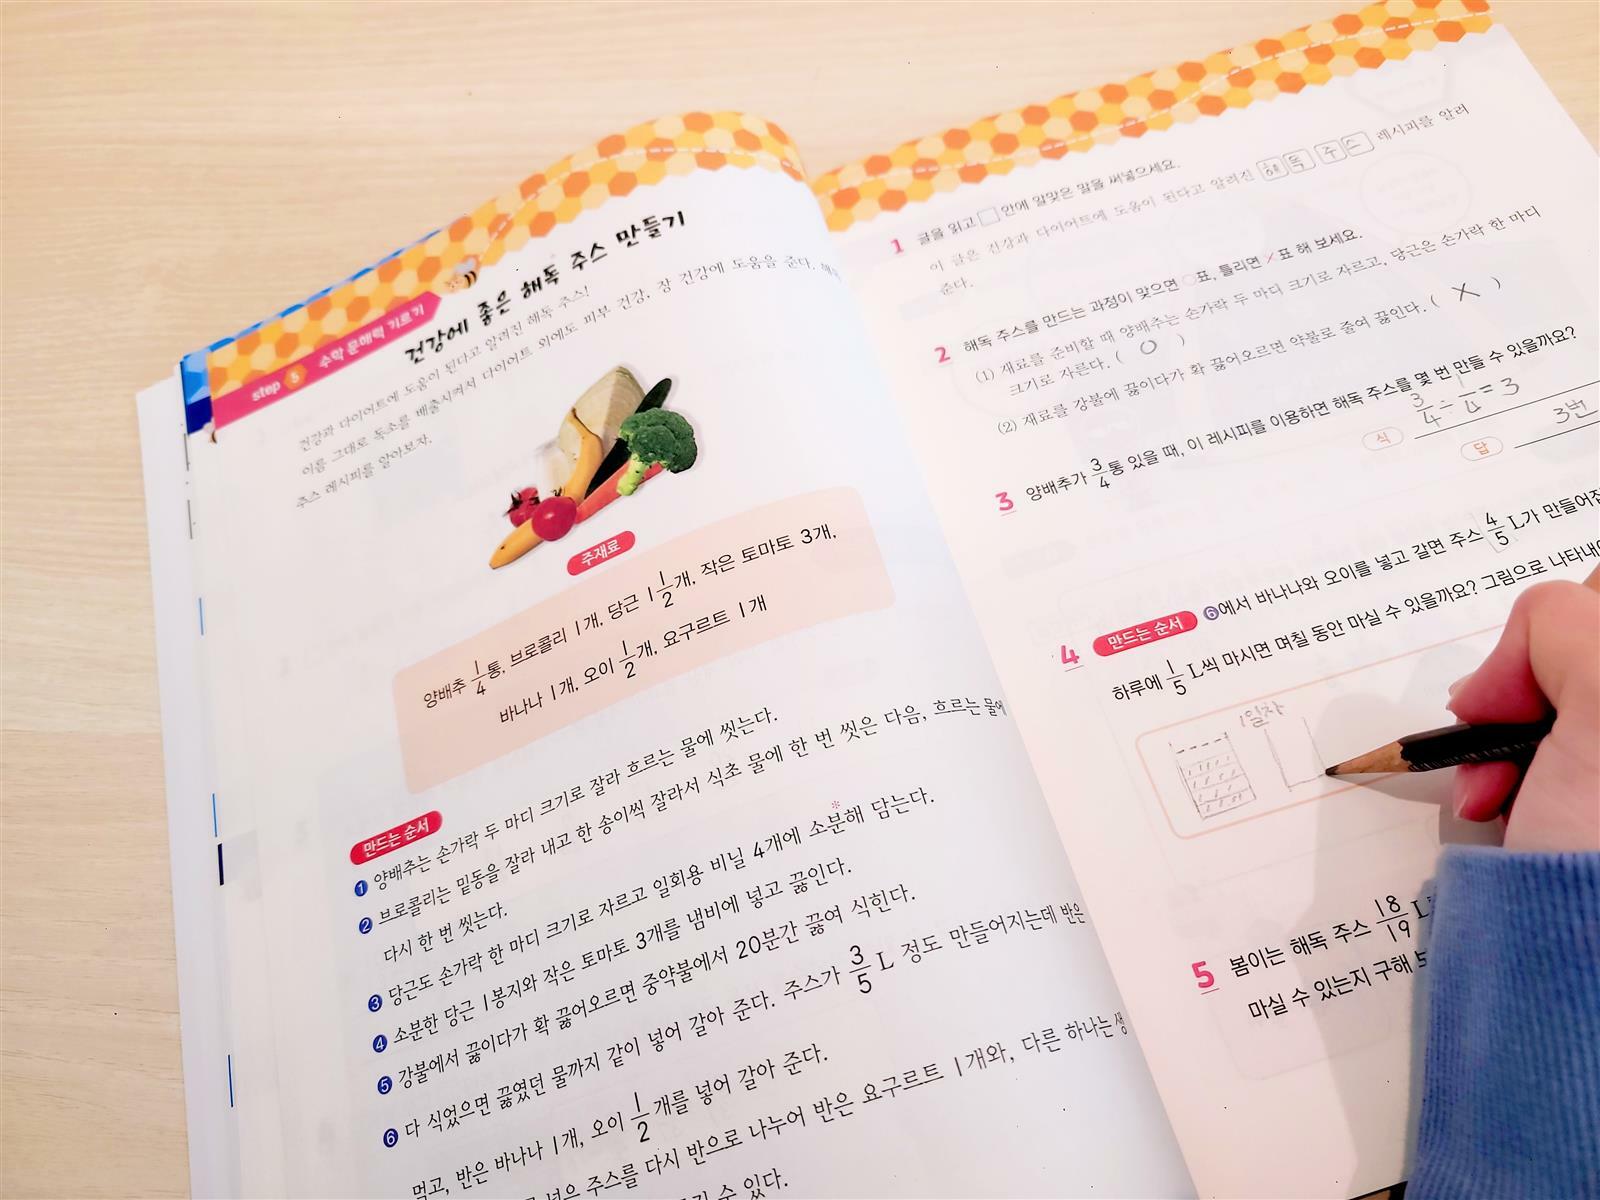 step 5 수학 문해력 기르기
건강에 좋은 해독 주스 만들기
건강과 다이어트에 도움이 된다고 알려진 해독 주스!
이름 그대로 독소를 배출시켜서 다이어트 외에도 피부 건강, 장 건강에 도움을 준다.
주스 레시피를 알아보자.
주재료
양배추 1/4통, 브로콜리 1개, 당근 1 1/2개, 작은 토마토 3개,
바나나 1개, 오이 1/2개, 요구르트 1개
만드는 순서
1 양배추는 손가락 두 마디 크기로 잘라 흐르는 물에 씻는다.
2 브로콜리는 밑동을 잘라 내고 한 송이씩 잘라서 식초 물에 한 번 씻은 다음, 흐르는 물에
다시 한 번 씻는다.
3 당근도 손가락 한 마디 크기로 자르고 일회용 비닐 4개에 소분*해 담는다.
4 소분한 당근 1봉지와 작은 토마토 3개를 냄비에 넣고 끓인다.
5 강불에서 끓이다가 확 끓어오르면 중약불에서 20분간 끓여 식힌다.
6 다 식었으면 끓였던 물까지 같이 넣어 갈아 준다. 주스가 3/5 L 정도 만들어지는데 반은
먹고, 반은 바나나 1개, 오이 1/2개를 넣어 갈아 준다.
넣은 주스를 다시 반으로 나누어 반은 요구르트 1개와, 다른 하나는 생
수 있다.
1 글을 읽고 □ 안에 알맞은 말을 써넣으세요.
이 글은 건강과 다이어트에 도움이 된다고 알려진 해독 주스 레시피를 알려
준다.
2 해독 주스를 만드는 과정이 맞으면 ○표, 틀리면 ×표 해 보세요.
(1) 재료를 준비할 때 양배추는 손가락 두 마디 크기로 자르고, 당근은 손가락 한 마디
크기로 자른다. ( O )
(2) 재료를 강불에 끓이다가 확 끓어오르면 약불로 줄여 끓인다. ( X )
3 양배추가 3/4통 있을 때, 이 레시피를 이용하면 해독 주스를 몇 번 만들 수 있을까요?
식 3/4÷1/4=3
답 3번
4 만드는 순서 6에서 바나나와 오이를 넣고 갈면 주스 4/5 L가
하루에 1/5 L씩 마시면 며칠 동안 마실 수 있을까요? 그림으로
1일차
5 봄이는 해독 주스 18/19 L
마실 수 있는지 구해